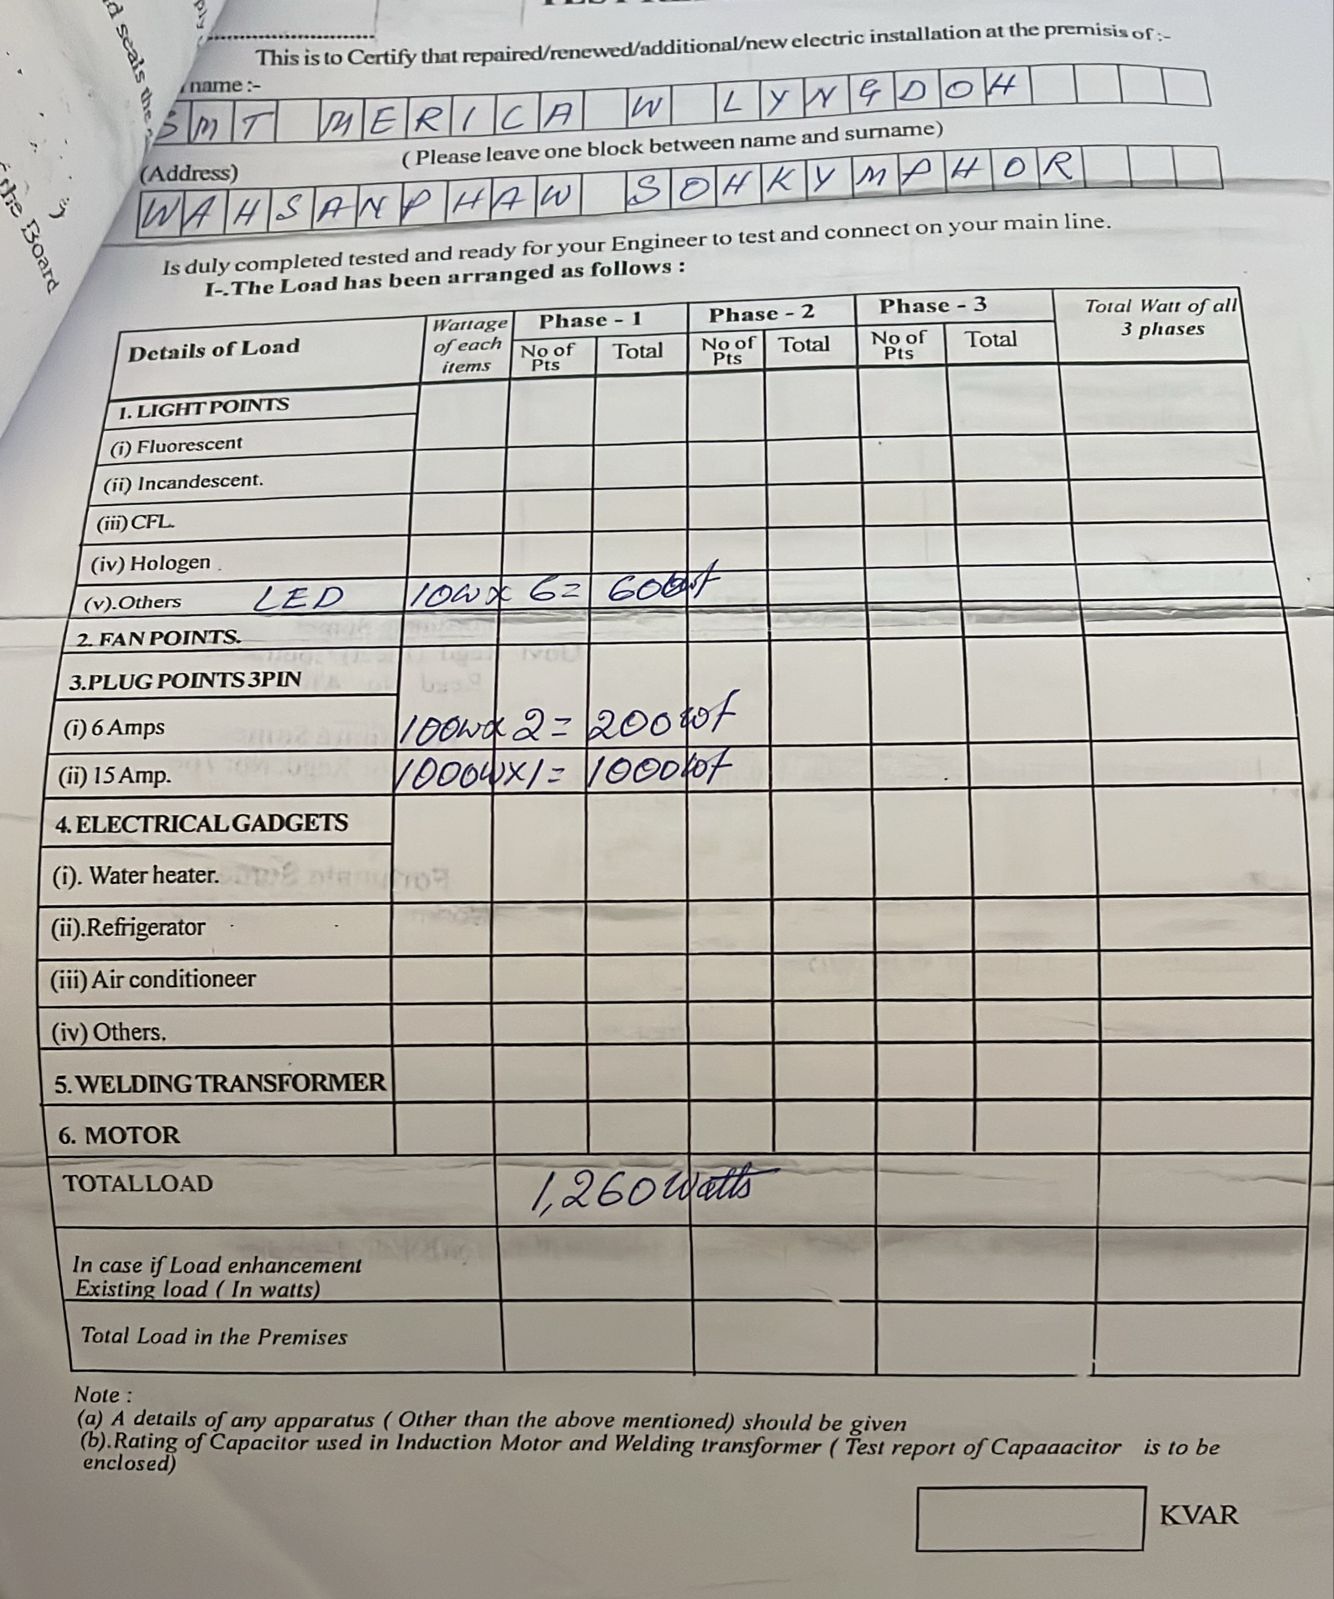 This is to Certify that repaired/renewed/additional/new electric installation at the premisis of :-
name :-
SMT MERICA W LYNGDOH
( Please leave one block between name and surname)
(Address)
WAHSANPHAW SOHKYMPHOR
Is duly completed tested and ready for your Engineer to test and connect on your main line.
I-.The Load has been arranged as follows :
Details of Load Wattage of each items Phase - 1 Phase - 2 Phase - 3 Total Watt of all 3 phases
No of Pts Total No of Pts Total No of Pts Total
1. LIGHT POINTS
(i) Fluorescent
(ii) Incandescent.
(iii) CFL.
(iv) Hologen
(v).Others LED 10w x 6 = 60
2. FAN POINTS.
3.PLUG POINTS 3PIN
(i) 6 Amps 100w x 2 = 200
(ii) 15 Amp. 1000w x 1 = 1000
4. ELECTRICAL GADGETS
(i). Water heater.
(ii).Refrigerator
(iii) Air conditioneer
(iv) Others.
5. WELDING TRANSFORMER
6. MOTOR
TOTAL LOAD 1,260 Watts
In case if Load enhancement
Existing load ( In watts)
Total Load in the Premises
Note :
(a) A details of any apparatus ( Other than the above mentioned) should be given
(b).Rating of Capacitor used in Induction Motor and Welding transformer ( Test report of Capaaacitor is to be
enclosed)
KVAR
seals the
the Board